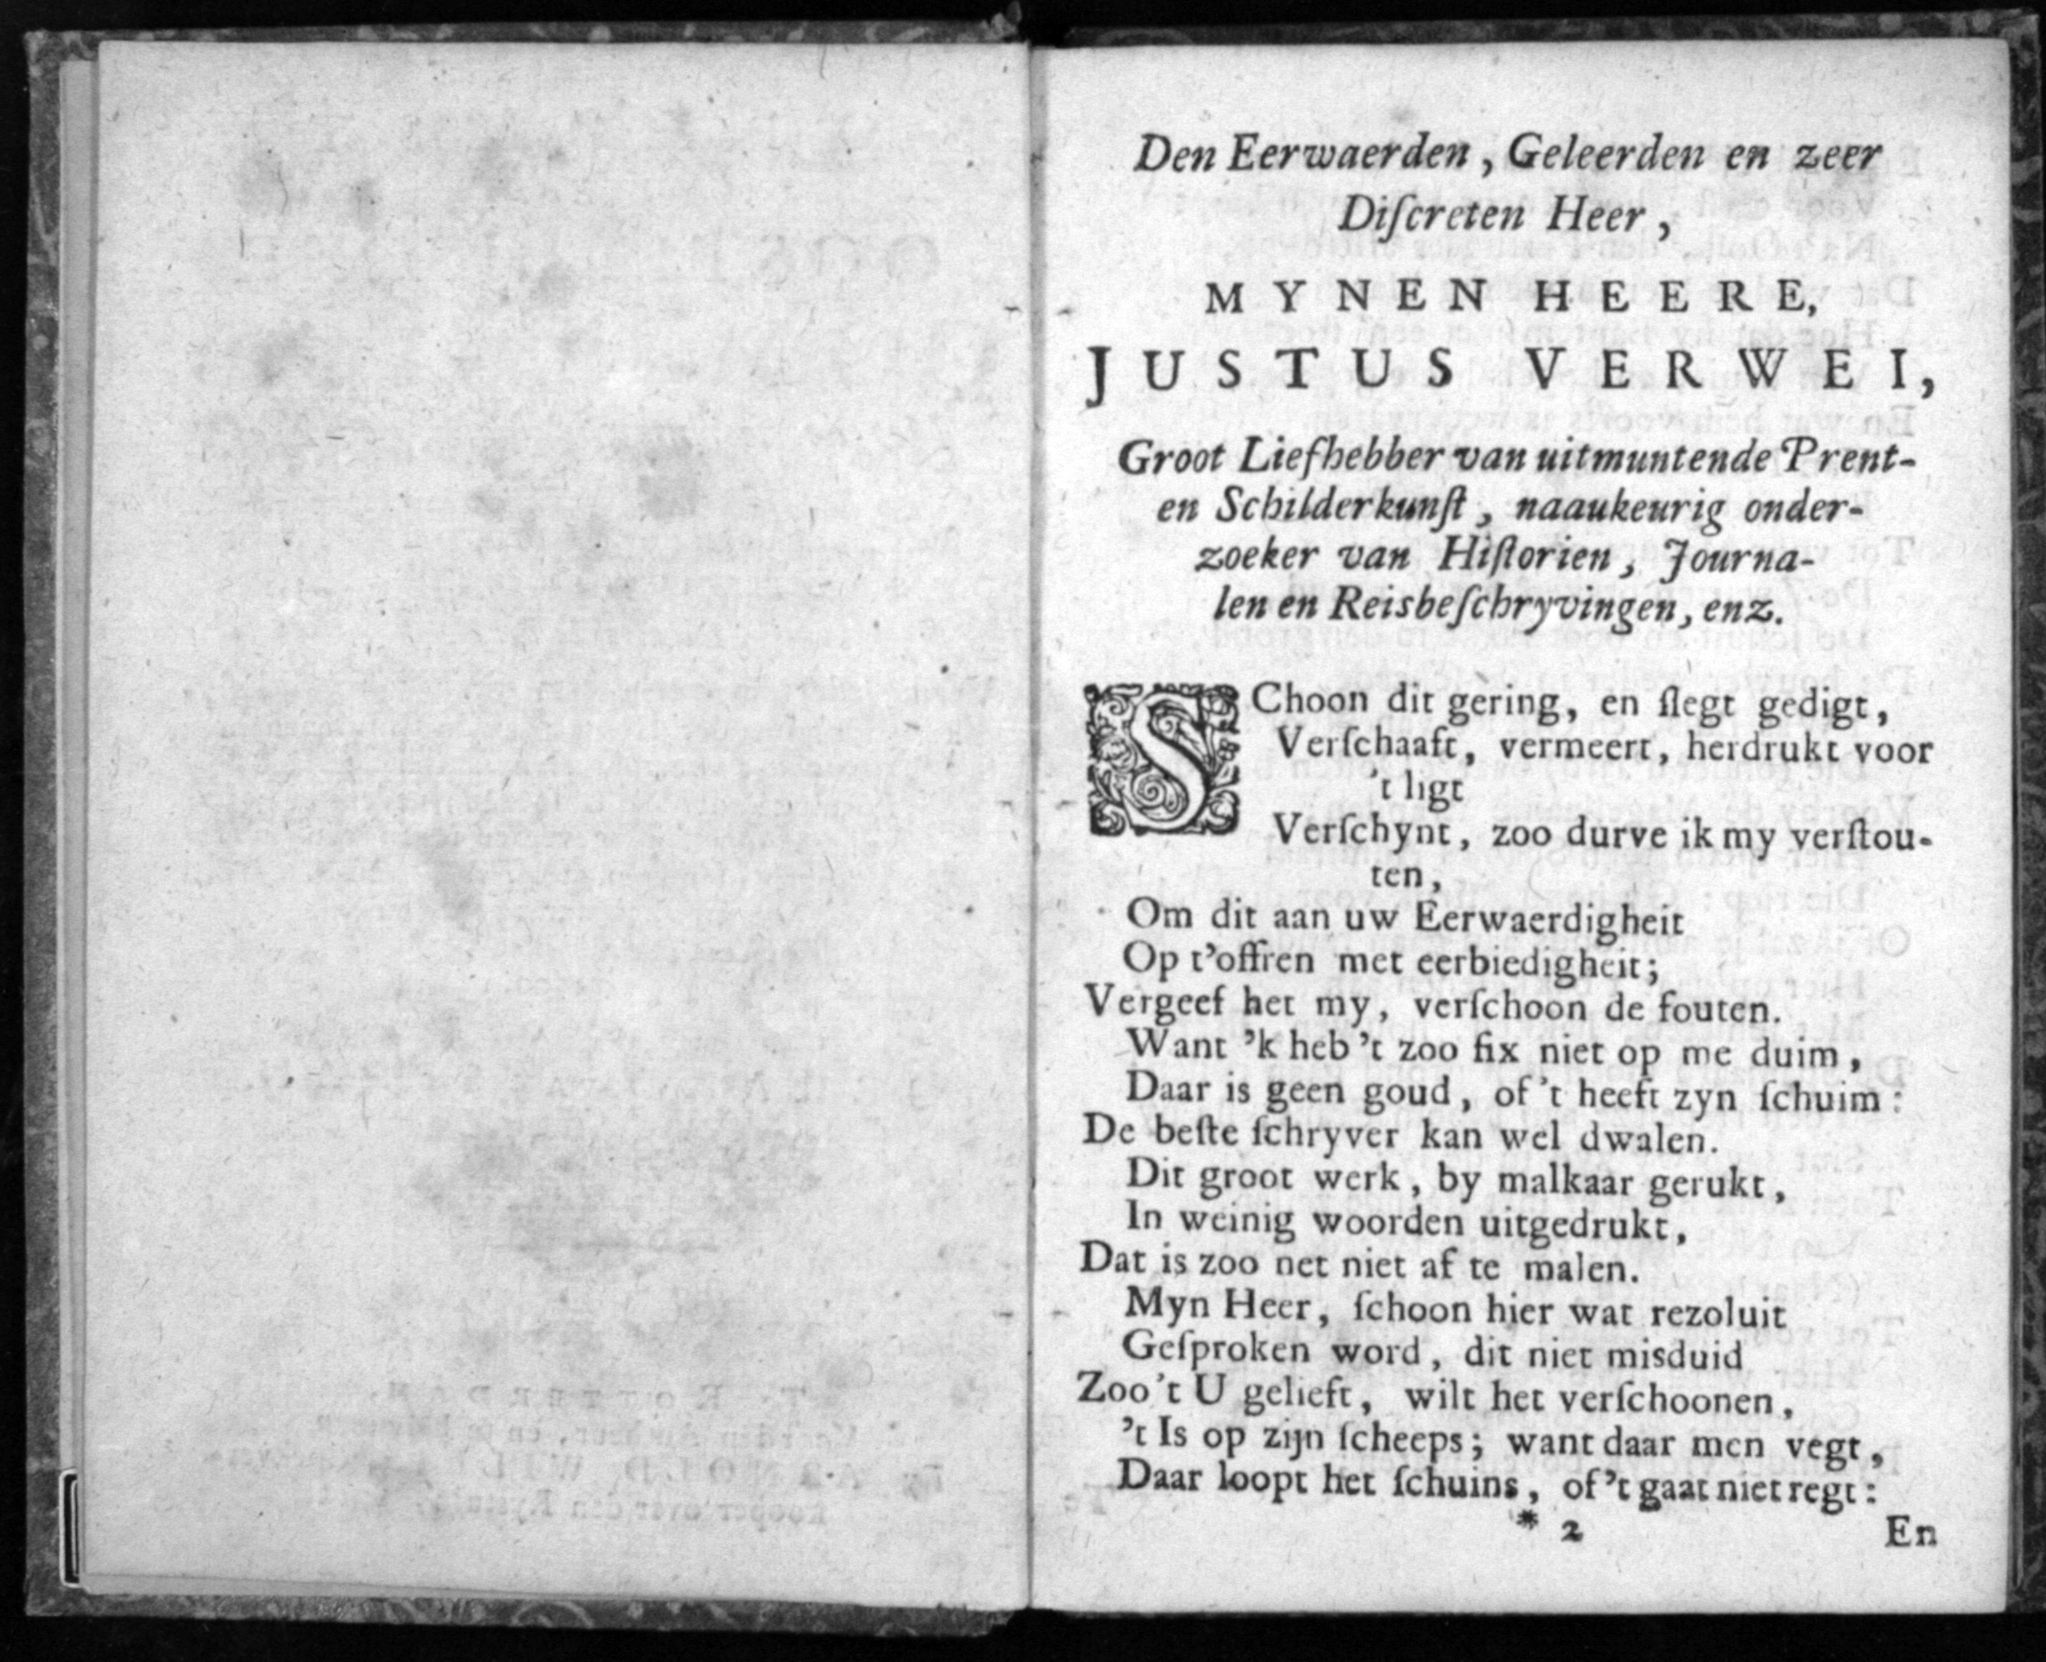 Den Eerwaerden, Geleerden en zeer
Diſcreten Heer,
MYNEN HEERE,
JUSTUS VERWEI,
Groot Liefhebber van uitmuntende Prent-
en Schilderkunſt, naaukeurig onder-
zoeker van Hiſtorien, Journa-
len en Reisbeſchryvingen, enz.
SChoon dit gering, en ſlegt gedigt,
Verſchaaft, vermeert, herdrukt voor
't ligt
Verſchynt, zoo durve ik my verſtou-
ten,
Om dit aan uw Eerwaerdigheit
Op t'offren met eerbiedigheit;
Vergeef het my, verſchoon de fouten.
Want 'k heb 't zoo fix niet op me duim,
Daar is geen goud, of 't heeft zyn ſchuim:
De beſte ſchryver kan wel dwalen.
Dit groot werk, by malkaar gerukt,
In weinig woorden uitgedrukt,
Dat is zoo net niet af te malen.
Myn Heer, ſchoon hier wat rezoluit
Geſproken word, dit niet misduid
Zoo 't U gelieft, wilt het verſchoonen,
't Is op zijn ſcheeps; want daar men vegt,
Daar loopt het ſchuins, of 't gaat niet regt:
* 2
En